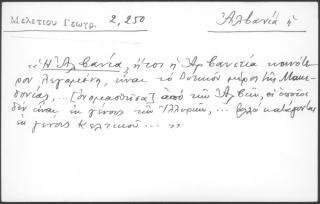 Μελετίου Γεωγρ. 2,250 Ἀλβανία ἡ
« Ἡ Ἀλβανία, ἤτοι ἡ Ἀρβανιτία κοινότε
ρον λεγομένη, εἶναι τὸ δυτικὸν μέρος τῆς Μακε
δονίας, ...[ὀνομασθεῖσα] ἀπὸ τῶν Ἀλβῶν, οἱ ὁποῖοι
δὲν εἶναι ἐκ γένους τῶν Ἰλλυριῶν,... ἀλλὰ κατάγονται
ἐκ γένους Κελτικοῦ...»